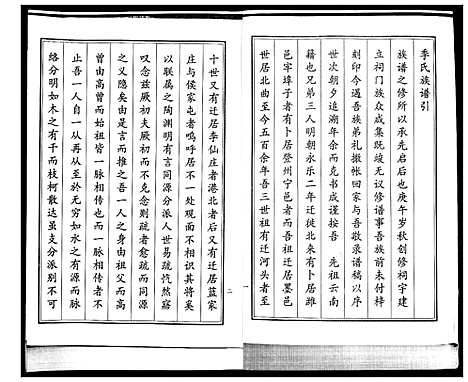 季氏族谱引
族谱之修所以承先启后也庚午岁秋创修祠宇建
立祠门族众成集既竣无议修谱事吾族前未付梓
刻印今遇吾族弟礼撤帐回家与吾敬录谱稿以序
世次朝夕追溯年余而克书成谨按吾 先祖云南
籍也兄弟三人明朝永乐二年迁徙北来有卜居潍
邑牢埠子者有卜居登州宁邑者而吾祖迁居墨邑
世居北曲至今五百余年吾三世祖有迁河头者至
一
二
十世又有迁居李仙庄者港北者后又有迁居蓝家
庄与侯家屯者呜呼居不一所不相识其将奚
以联属之陶渊明有言同源分派人世易疏慨然寤
叹念兹厥初夫厥初而不克念则疏者愈疏而同源
之义隐矣由是言而推之吾一人之身由祖父而高
曾由高曾而始祖皆一脉相传也一脉相传者不
止吾一人自一从再从至於无穷如水之有源而脉
络分明如木之有干而枝柯散达虽支分派别不可